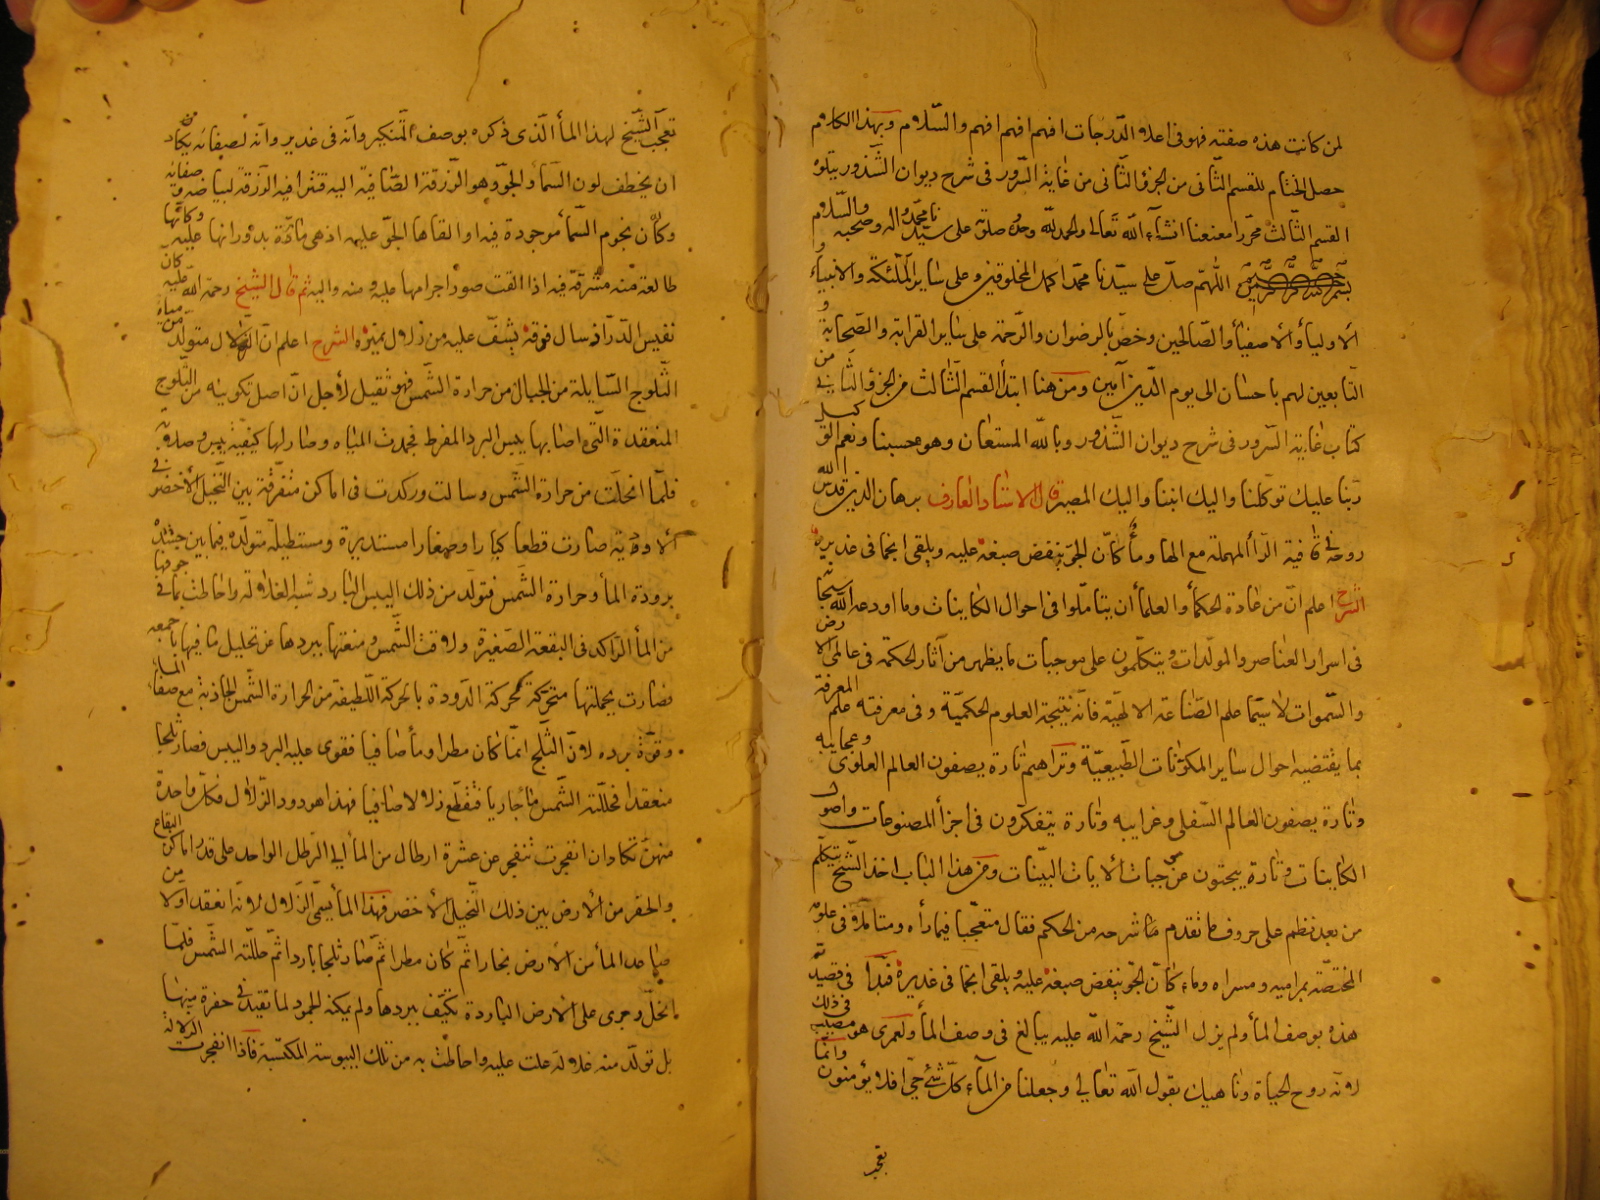 لمن كانت هذه صفته فهو فى اعلا الدّرجات افهم افهم افهم والسّلام وبهذا الكلام
حصل الختام للقسم الثّانى من الجزؤ الثّانى من غاية السّرور فى شرح ديوان الشّذور يتلوه
القسم الثّالث محرّرا معنعنا انشآء اللّه تعالى والحمد للّه وحده صلوته على سيّدنا محمّد واله وصحبه والسّلام
اللّهم صلّ على سيّدنا محمّد اكمل المخلوقين وعلى ساير الملٰئكة والانبيأ و
الاوليأ والاصفيأ والصّالحين وخصّ بالرضوان والرّحمة على ساير القرابة والصّحابة و
التّابعين لهم باحسان الى يوم الدّين آمين ومن هنا ابتدأ القسم الثّالث من الجزؤ الثّانى من
كتاب غاية السّرور فى شرح ديوان الشّذور وباللّه المستعان وهو حسبنا ونعم الوكيل
ربّنا عليك توكّلنا واليك انبنا واليك المصير قال الاستاد العارف برهان الدين قدّس اللّه
روحه فى قافية الرّأ المهملة مع الها ومأ كانّ الجوّ ينفض صبغه عليه ويلقى انجما فى غديره
الشرح اعلم انّ من عادة الحكمأ والعلمأ ان يتاملوا فى احوال الكاينات وما اودعه اللّه سبحانه
فى اسرار العناصر والمولّدات ويتكلّمون على موجبات ما يظهر من آثار الحكمة فى عالمى الارض
والسّموات لا سيّما علم الصّناعة الالهيّة فانّه نتيجة العلوم الحكميّة وفى معرفته علم المعرفة
بما يقتضيه احوال ساير المكوّنات الطّبيعيّة وتراهم تارة يصفون العالم العلوى وعجايبه
وتارة يصفون العالم السّفلى وغرايبه وتارة يتفكّرون فى اجزأ المصنوعات واصول
الكاينات وتارة يبحثون عن موجبات الايات البيّنات ومن هذا الباب اخذ الشّيخ يتكلّم
من بعد نظم على حروف ما تقدم ما شرحه من الحكم فقال متعجّبا فيما رأه ومتاملا فى علومه
المختصّة بمراميه ومسراه وماء كانّ الجوّ ينفض صبغه عليه ويلقى انجما فى غديره فبدأ فى قصيدته
هذه بوصف المأ ولم يزل الشّيخ رحمة اللّه عليه يبالغ فى وصف المأ ولعمرى هو مصيب فى ذلك
لانّه روح الحياة وناهيك بقول اللّه تعالى وجعلنا من المآء كلّ شئ حىّ افلا يؤمنون وانّما
تعجّب
تعجّب الشّيخ لهذا المأ الّذى ذكره بوصف التنكير وانّه فى غدير وانّه لصفائه يكاد
ان يخطف لون السّمأ والجوّ وهو الزّرقة الصّافية اليه فترا فيه الزّرقة لبياضه وصفائه
وكأنّ نجوم السّمأ موجودة فيه او القاها الجوّ عليه اذ هى مادّة بدورانها عليه وكانّها
طالعة منه مشرقة فيه اذا القت صور اجرامها عليه ومنه واليه ثم قال الشيخ رحمة اللّه عليه
نفيس الدّر اذ سال فوقه يشفّ عليه من زلال نميره الشرح اعلم انّ الزّلال متولّد من مياه
الثّلوج السّايلة من الجبال من حرارة الشّمس فهو ثقيل لاجل انّ اصل تكوينه من الثّلوج
المنعقدة الّتى اصابها يبس البرد المفرط فجمدت المياه وصار لها كيفية يبس وصلابة
فلمّا انحلّت من حرارة الشّمس وسالت وركدت فى اماكن متفرّقة بين النّجيل الاخضر فى
الاودية صارت قطعا كبارا وصغارا مستديرة ومستطيلة متولّده فيما بين
برودة المأ وحرارة الشّمس فتولّد من ذلك اليبس البارد شبه الغلالة واحاطت بما فى جوفها
من المأ الرّاكد فى البقعة الصّغيرة ولاقت الشّمس ومنعتها ببردها عن تحليل ما فيها باجمعه
فصارت بجملتها متحرّكة كحركة الدّودة بالحركة اللّطيفة من الحرارة الشّمس الجاذبة مع صفأ الماء
وقوّة برده لانّ الثّلج انّما كان مطرا ومأ صافيا فقوى عليه البرد واليبس فصار ثلجا
منعقدا فحلّلته الشّمس مأ جاريا فتقطّع زلالا صافيا فهذا هو دود الزّلال فكلّ واحدة
منهنّ تكاد ان انفجرت تنفجر عن عشرة ارطال من المأ الى الرّطل الواحد على قدر اماكن البقاع
والحفر من الارض بين ذلك النّجيل الاخضر فهذا المأ يسمّى الزّلال لانّه انعقد اولا من
صاعد المأ من الارض بخارا ثمّ كان مطرا ثمّ صار ثلجا باردا ثمّ حلّلته الشّمس فلمّا
انحلّ وجرى على الارض الباردة تكيّف ببردها ولم يمكنه الجمود لما تقيّد فى حفرة منها
بل تولّد منه غلالة علت عليه واحاطت به من تلك اليبوسة المكتسبة فاذا انفجرت الزلالة